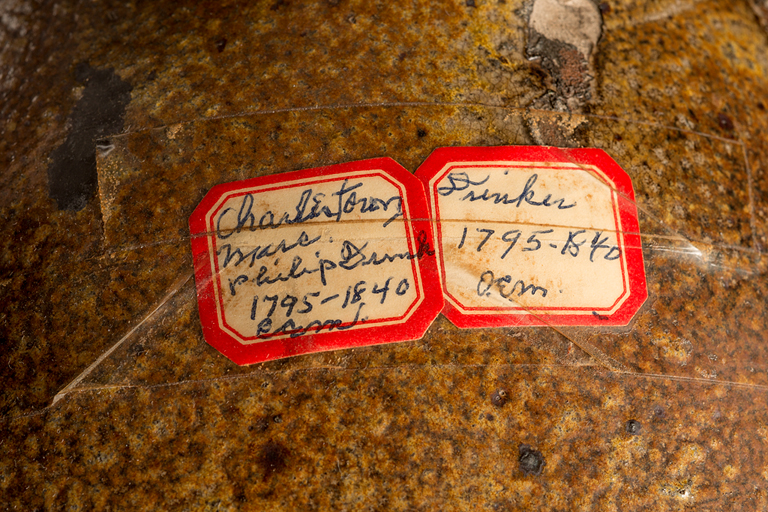 Charlestown
Mass.
Philip Drink
1795-1840
Drinker
1795-1840